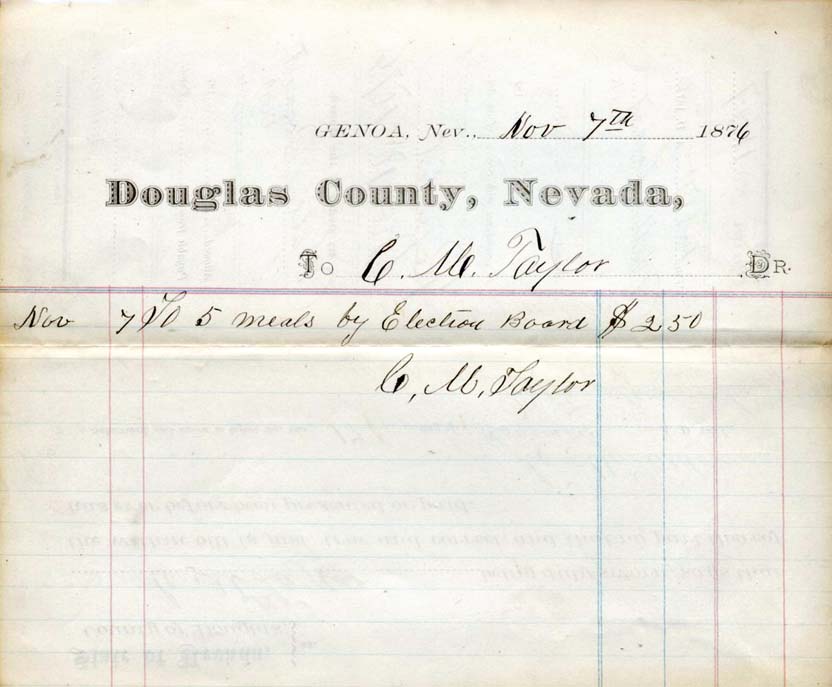 GENOA, Nev., Nov 7th 1876
Douglas County, Nevada,
To C. M. Taylor Dr.
Nov 7 To 5 meals by Election Board $ 2 50
C. M. Taylor